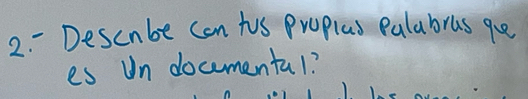 2.- Describe con tus propias palabras que
es Un documental?